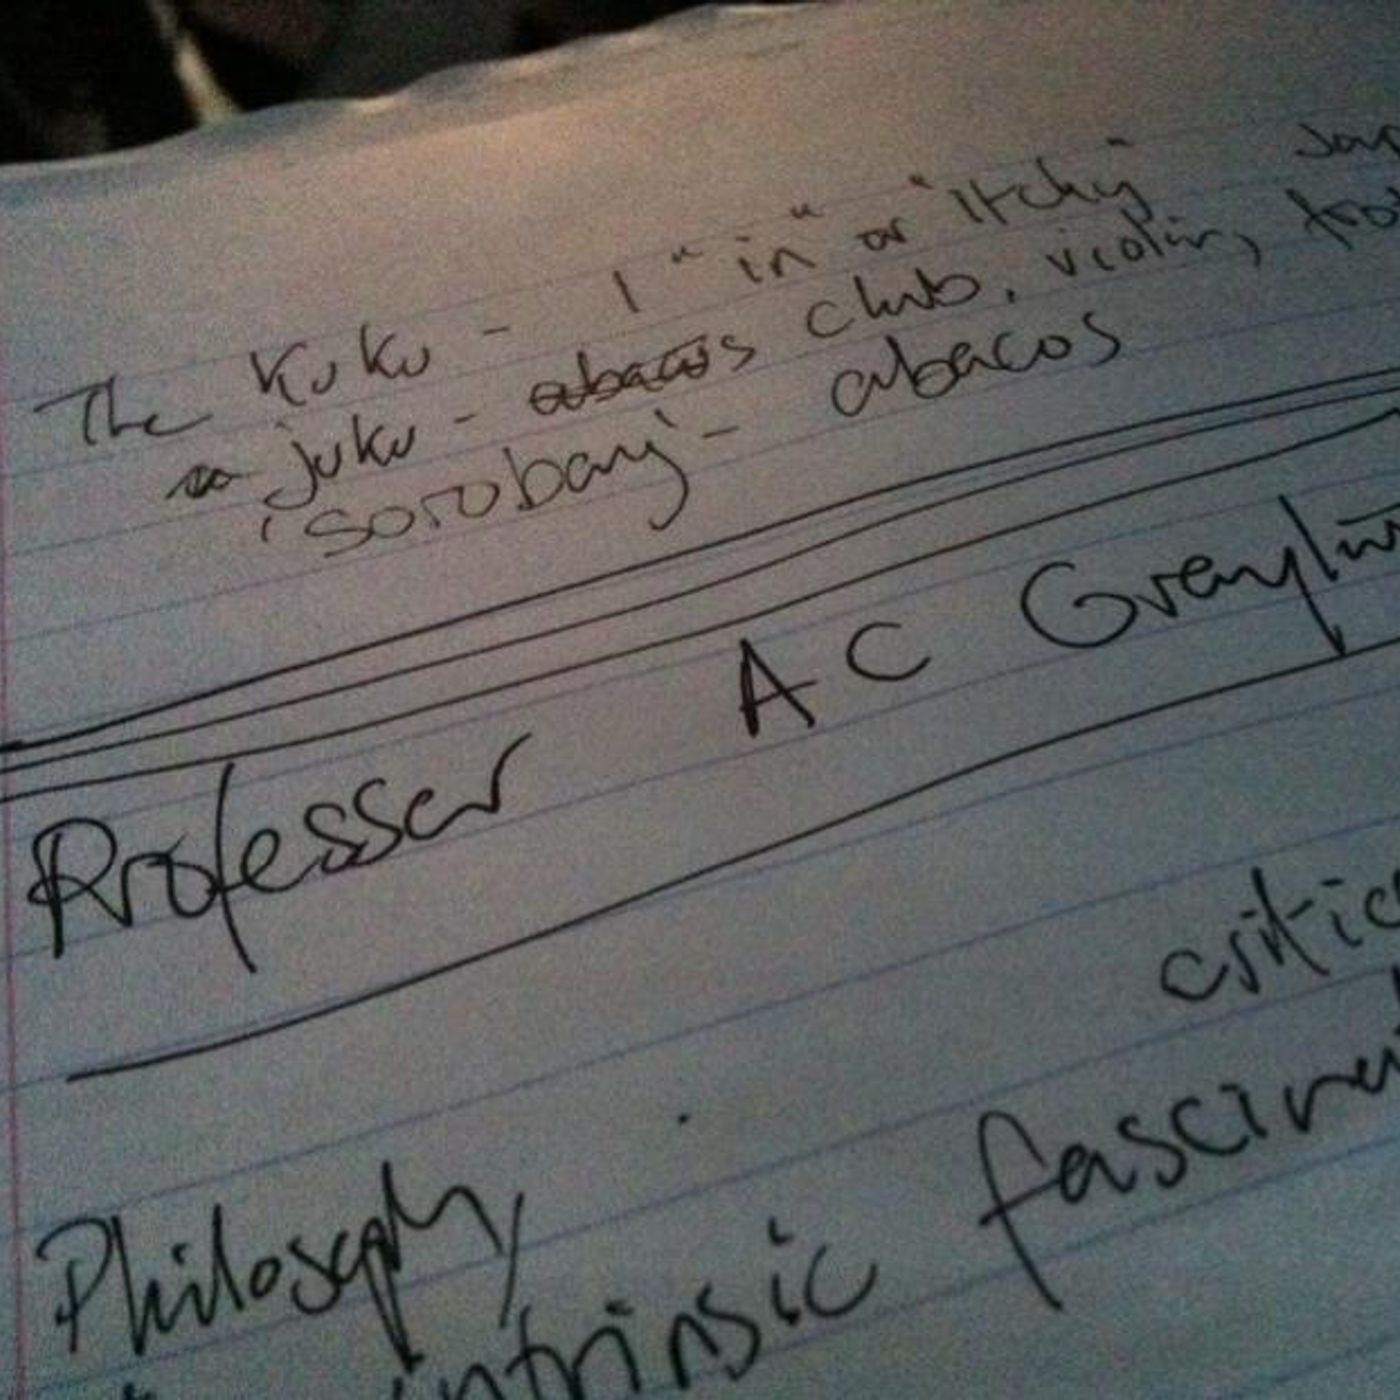 The Kuku - 1 "in" or "itchy"
juku - abacus club, violin,
'sorobang' - abacos
Professor AC Grayling
Philosophy
critic
intrinsic fascina